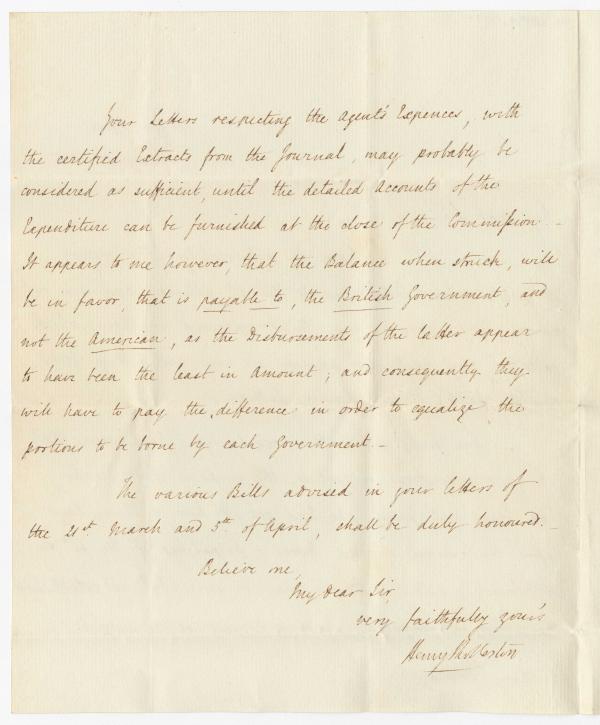 Your Letters respecting the Agent's Expences, with
the certified Extracts from the Journal, may probably be
considered as sufficient, until the detailed Accounts of the
Expenditure can be furnished at the close of the Commission –
It appears to me however, that the Balance when struck, will
be in favor, that is payable to, the British Government, and
not the American, as the Disbursements of the latter appear
to have been the least in Amount; and consequently they
will have to pay the difference in order to equalize the
portions to be borne by each Government –
The various Bills advised in your letters of
the 21st March and 5th of April, shall be duly honoured –
Believe me,
My Dear Sir,
very faithfully your's
Henry